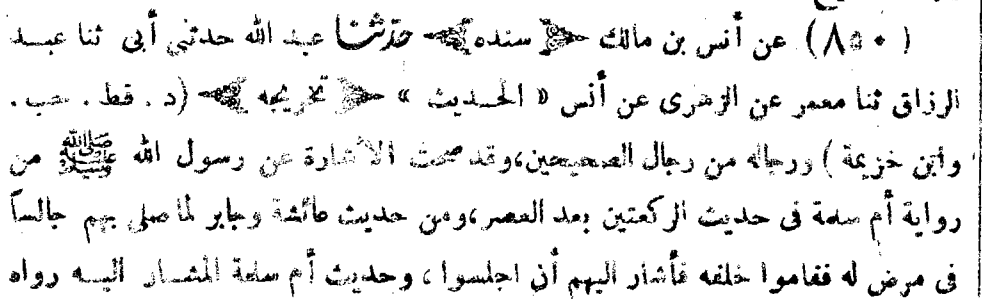 (٨٥٠) عن أنس بن مالك سنده حدثنا عبد الله حدثنى أبى ثنا عبد
الرزاق ثنا معمر عن الزهرى عن أنس « الحديث » تخريجه (د . قط . حب .
وابن خزيمة) ورجاله من رجال الصحيحين،وقد صحت الاشارة عن رسول الله ﷺ من
رواية أم سلمة فى حديث الركعتين بعد العصر،ومن حديث عائشة وجابر لما صلى بهم جالساً
فى مرض له فقاموا خلفه فأشار اليهم أن اجلسوا ، وحديث أم سلمة المشار اليه رواه